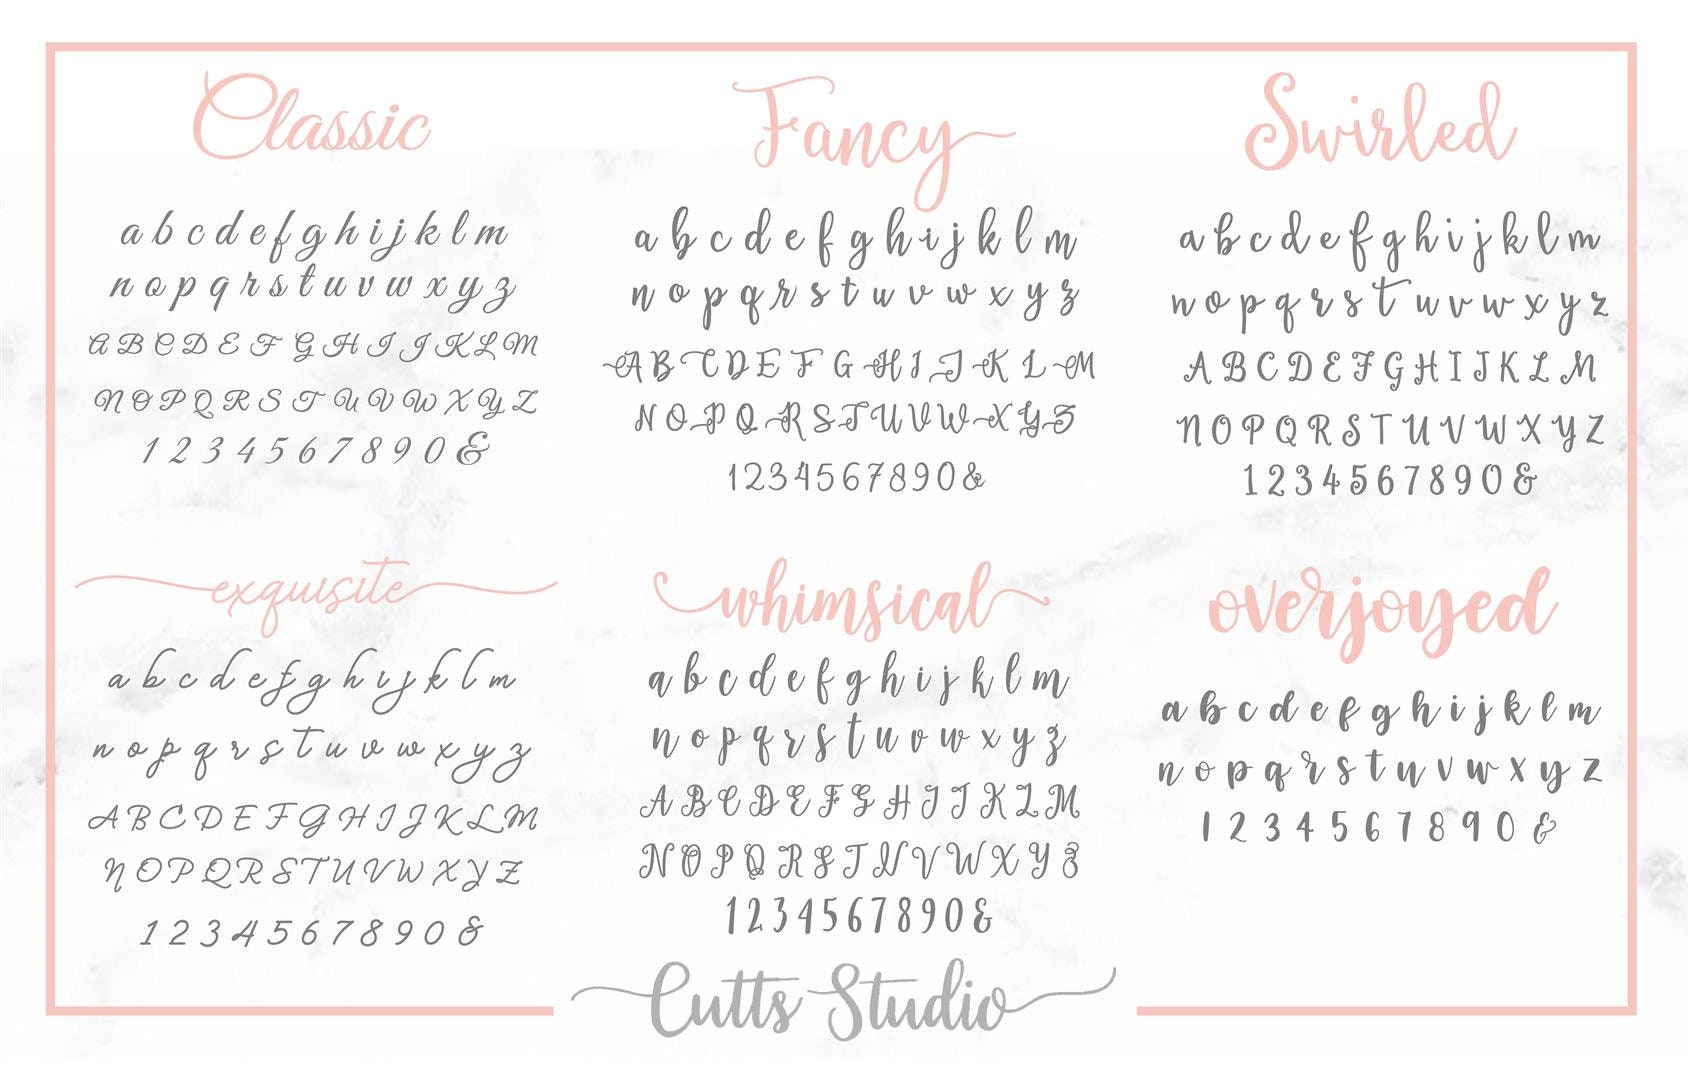 Classic
a b c d e f g h i j k l m
n o p q r s t u v w x y z
A B C D E F G H I J K L M
N O P Q R S T U V W X Y Z
1 2 3 4 5 6 7 8 9 0 &
Fancy
a b c d e f g h i j k l m
n o p q r s t u v w x y z
A B C D E F G H I J K L M
N O P Q R S T U V W X Y Z
1 2 3 4 5 6 7 8 9 0 &
Swirled
a b c d e f g h i j k l m
n o p q r s t u v w x y z
A B C D E F G H I J K L M
N O P Q R S T U V W X Y Z
1 2 3 4 5 6 7 8 9 0 &
exquisite
a b c d e f g h i j k l m
n o p q r s t u v w x y z
A B C D E F G H I J K L M
N O P Q R S T U V W X Y Z
1 2 3 4 5 6 7 8 9 0 &
whimsical
a b c d e f g h i j k l m
n o p q r s t u v w x y z
A B C D E F G H I J K L M
N O P Q R S T U V W X Y Z
1 2 3 4 5 6 7 8 9 0 &
overjoyed
a b c d e f g h i j k l m
n o p q r s t u v w x y z
1 2 3 4 5 6 7 8 9 0 &
Cutts Studio